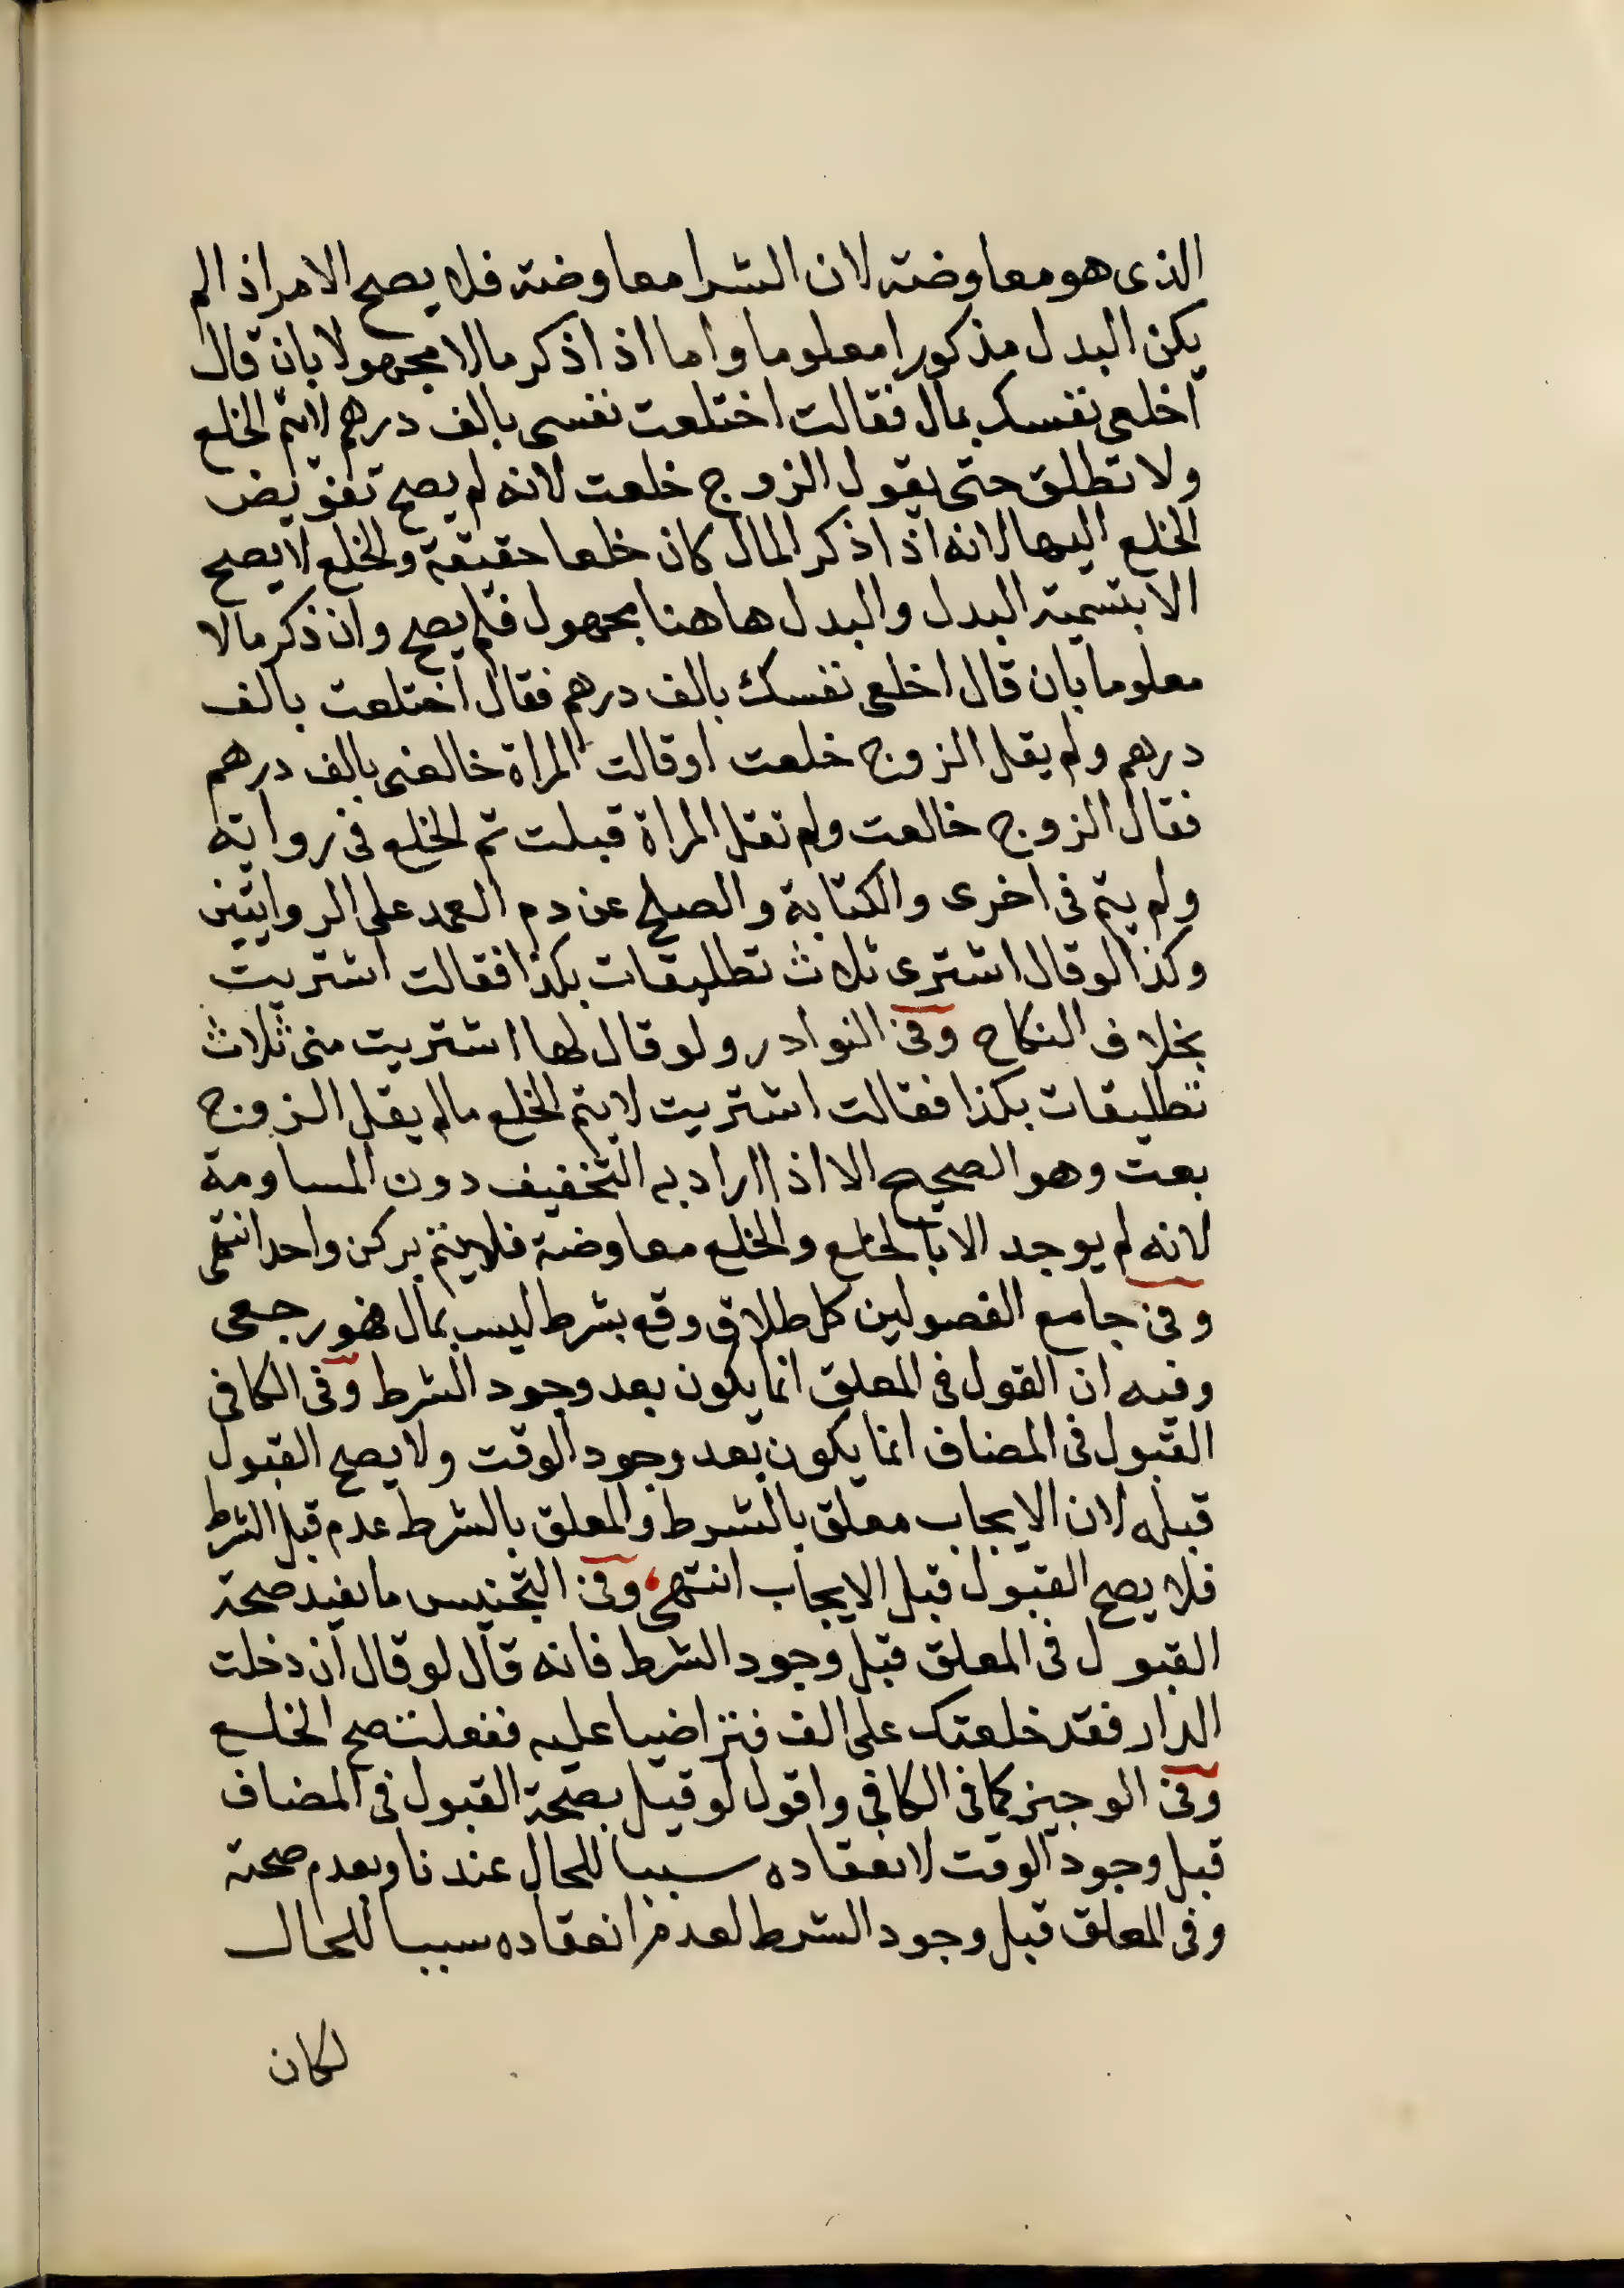 الذى هو معاوضة لان الشرا معاوضة فلا يصح الامر اذا لم
يكن البدل مذكورا معلوما واما اذا ذكر مالا مجهولا بان قال
اخلعى نفسك بمال فقالت اختلعت نفسى بالف درهم لايتم الخلع
ولا تطلق حتى يقول الزوج خلعت لانه لم يصح تفويض
الخلع اليها لانه اذا ذكر المال كان خلعا حقيقة والخلع لا يصح
الا بتسمية البدل والبدل هاهنا مجهول فلم يصح وان ذكر مالا
معلوما بان قال اخلعى نفسك بالف درهم فقال اختلعت بالف
درهم ولم يقل الزوج خلعت او قالت المراة خالعنى بالف درهم
فقال الزوج خالعت ولم تقل المراة قبلت تم الخلع فى رواية
ولم يتم فى اخرى والكتابة والصلح عن دم العمد على الروايتين
وكذا لو قال اشترى ثلاث تطليقات بكذا فقالت اشتريت
بخلاف النكاح وفى النوادر ولو قال لها اشتريت منى ثلاث
تطليقات بكذا فقالت اشتريت لايتم الخلع مالم يقل الزوج
بعت وهو الصحيح الا اذا اراد به التخفيف دون المساومة
لانه لم يوجد الا بالخلع والخلع معاوضة فلا يتم بركن واحد انتهى
وفى جامع الفصولين كل طلاق وقع بشرط ليس بمال فهو رجعى
وفيه ان القول فى المعلق انما يكون بعد وجود الشرط وفى الكافى
القبول فى المضاف انما يكون بعد وجود الوقت ولا يصح القبول
قبله لان الايجاب معلق بالشرط والمعلق بالشرط عدم قبل الشرط
فلا يصح القبول قبل الايجاب انتهى، وفى التجنيس ما يفيد صحة
القبول فى المعلق قبل وجود الشرط فانه قال لو قال ان دخلت
الدار فقد خلعتك على الف فتراضيا عليه ففعلت صح الخلع
وفى الوجيز كما فى الكافى واقول لو قيل بصحة القبول فى المضاف
قبل وجود الوقت لانعقاده سببا للحال عندنا وبعدم صحة
وفى المعلق قبل وجود الشرط لعدم انعقاده سببا للحال
لكان